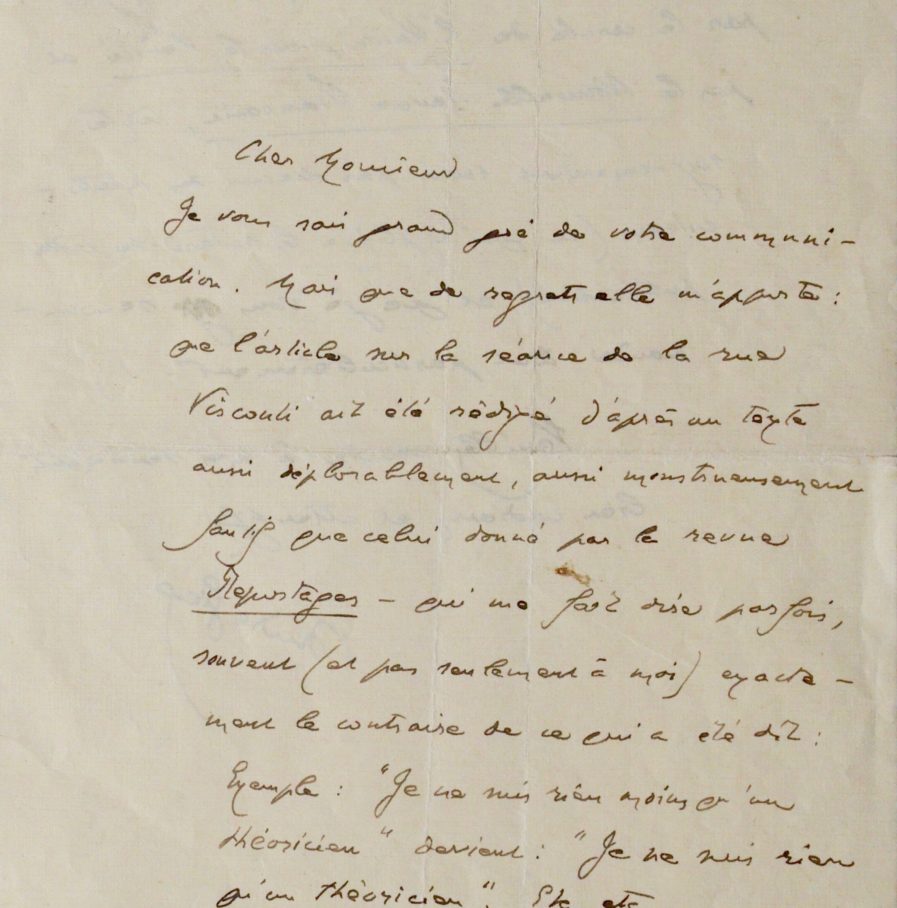 Cher Monsieur
Je vous sais grand gré de votre communi-
cation. Mais que de regrets elle m'apporte :
que l'article sur la séance de la rue
Visconti ait été rédigé d'après un texte
aussi déplorablement, aussi monstrueusement
fautif que celui donné par la revue
Reportages - qui me fait dire parfois,
souvent (et pas seulement à moi) exacte-
ment le contraire de ce qui a été dit :
Exemple : "Je ne suis rien moins qu'un
théoricien" devient : "Je ne suis rien
qu'un théoricien". Etc etc